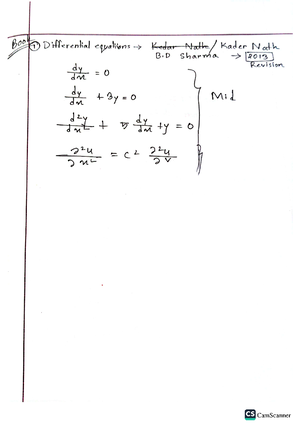 Book
1) Differential equations → Kedar Nath / Kader Nath
B.D Sharma → 2013
Revision
dy/dx = 0
dy/dx + 3y = 0
Mid
d²y/dx² + dy/dx + y = 0
∂²u/∂x² = c² ∂²u/∂v
CS CamScanner